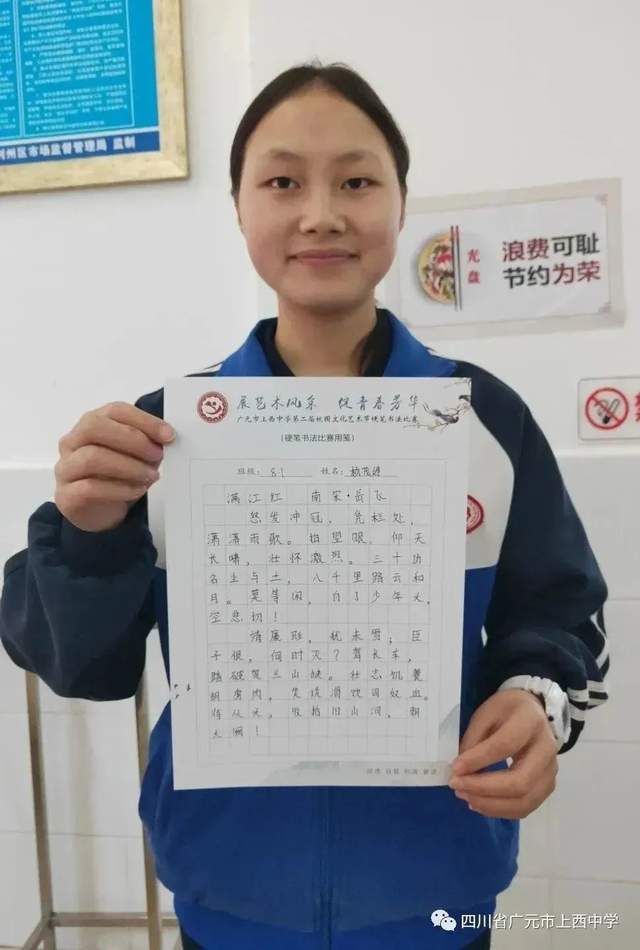 利州区市场监督管理局 监制
光盘
浪费可耻
节约为荣
展艺术风采 绽青春芳华
广元市上西中学第二届校园文化艺术节硬笔书法比赛
(硬笔书法比赛用笺)
班级: 8.1 姓名:
满江红 南宋·岳飞
怒发冲冠，凭栏处，
潇潇雨歇。抬望眼，仰天
长啸，壮怀激烈。三十功
名尘与土，八千里路云和
月。莫等闲，白了少年头，
空悲切！
靖康耻，犹未雪，臣
子恨，何时灭？驾长车，
踏破贺兰山缺。壮志饥餐
胡虏肉。笑谈渴饮匈奴血。
待从头，收拾旧山河，朝
天阙！
四川省广元市上西中学